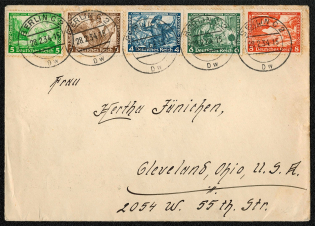 BERLIN
28.2.34
5 Deutsches Reich 5
Deutsches Reich
4 Deutsches Reich 4
6 Deutsches Reich 6
8 Deutsches Reich 8
Frau
Hertha Jänichen,
Cleveland, Ohio, U.S.A
2054 W. 55 th. Str.